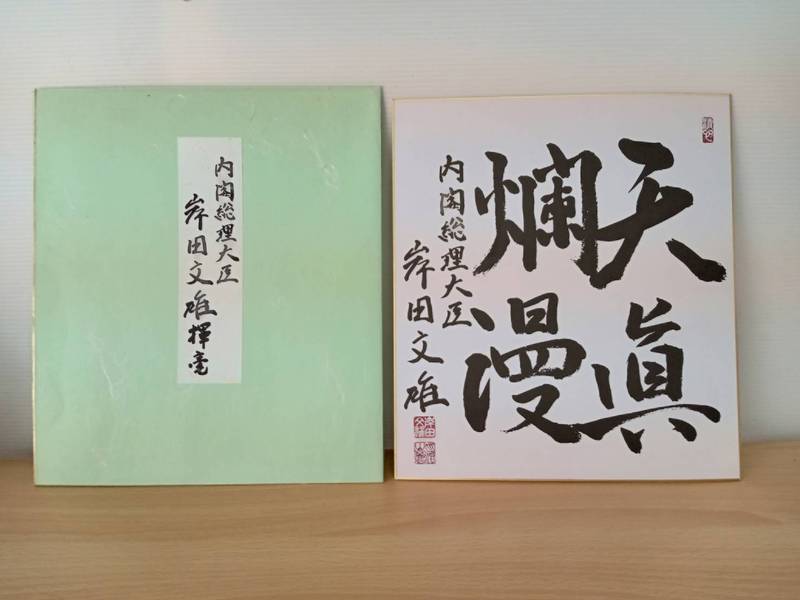 内閣総理大臣
岸田文雄揮毫
天真
爛漫
内閣総理大臣
岸田文雄